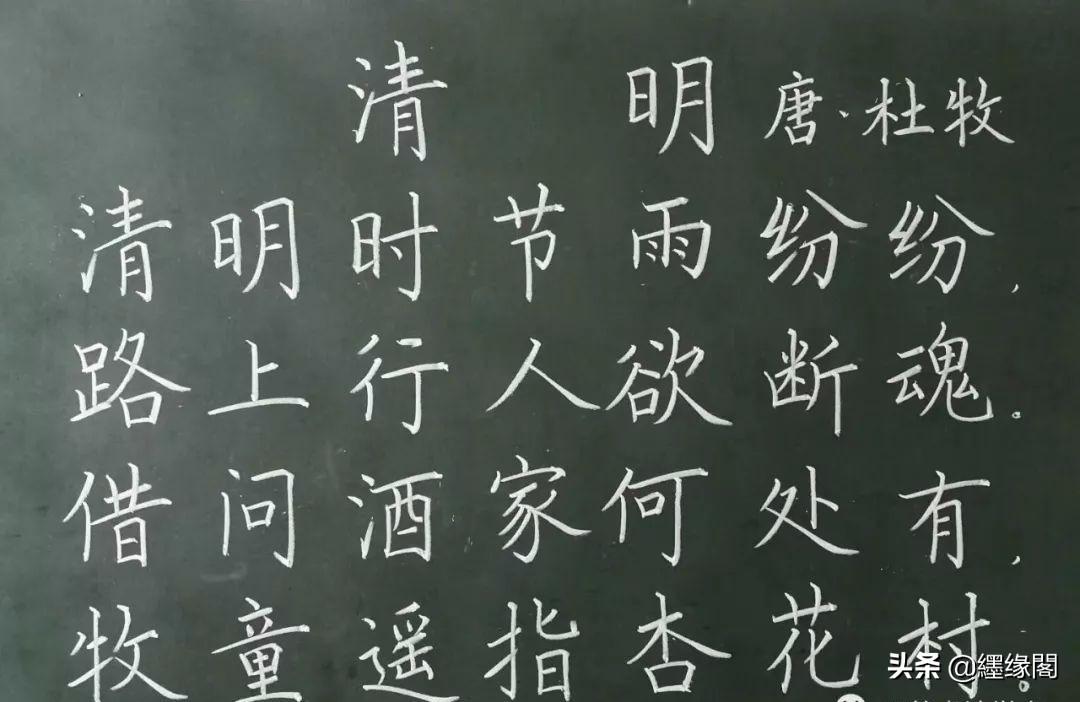 清明 唐·杜牧
清明时节雨纷纷,
路上行人欲断魂。
借问酒家何处有,
牧童遥指杏花村。
头条 @纆缘閣